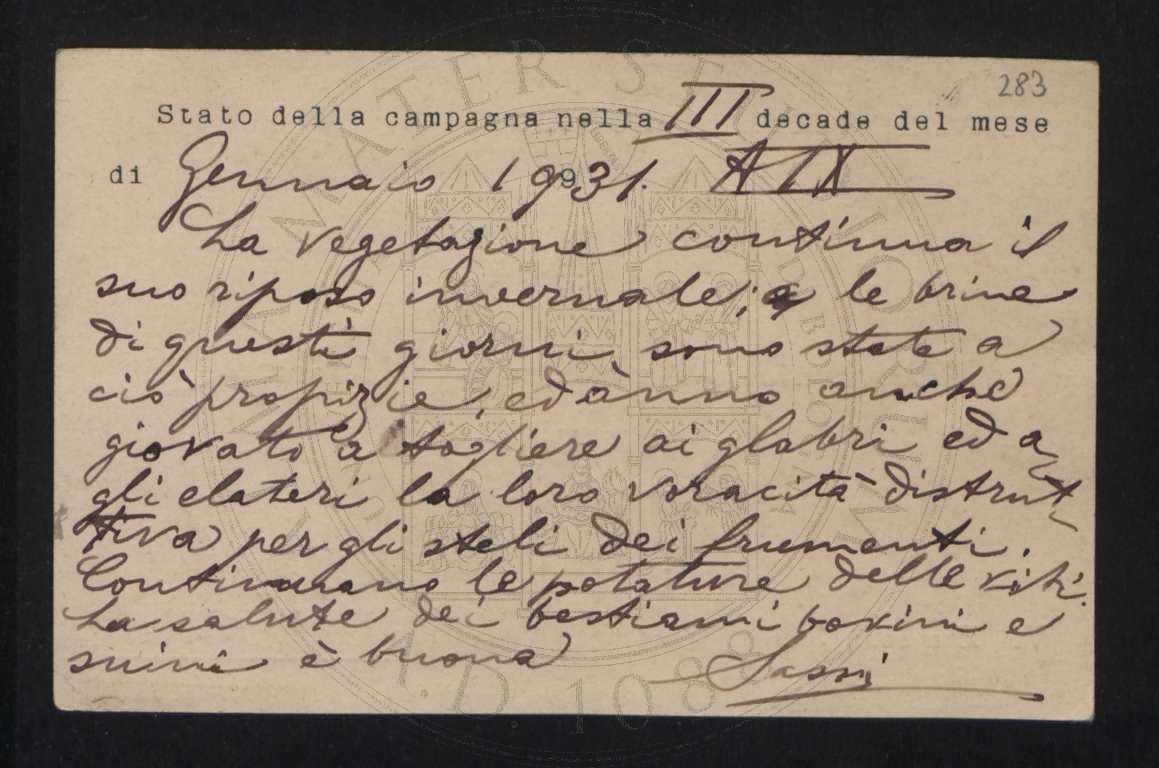 283
Stato della campagna nella III decade del mese
di Gennaio 1931. A IX
La vegetazione continua il
suo riposo invernale; e le brine
di questi giorni sono state a
ciò propizie, ed ànno anche
giovato a togliere ai glabri ed a-
gli elateri la loro voracità distrut-
tiva per gli steli dei frumenti.
Continuano le potature delle viti.
La salute dei bestiami bovini e
suini è buona
Sassi
ALMA MATER STUDIORUM
A.D. 1088